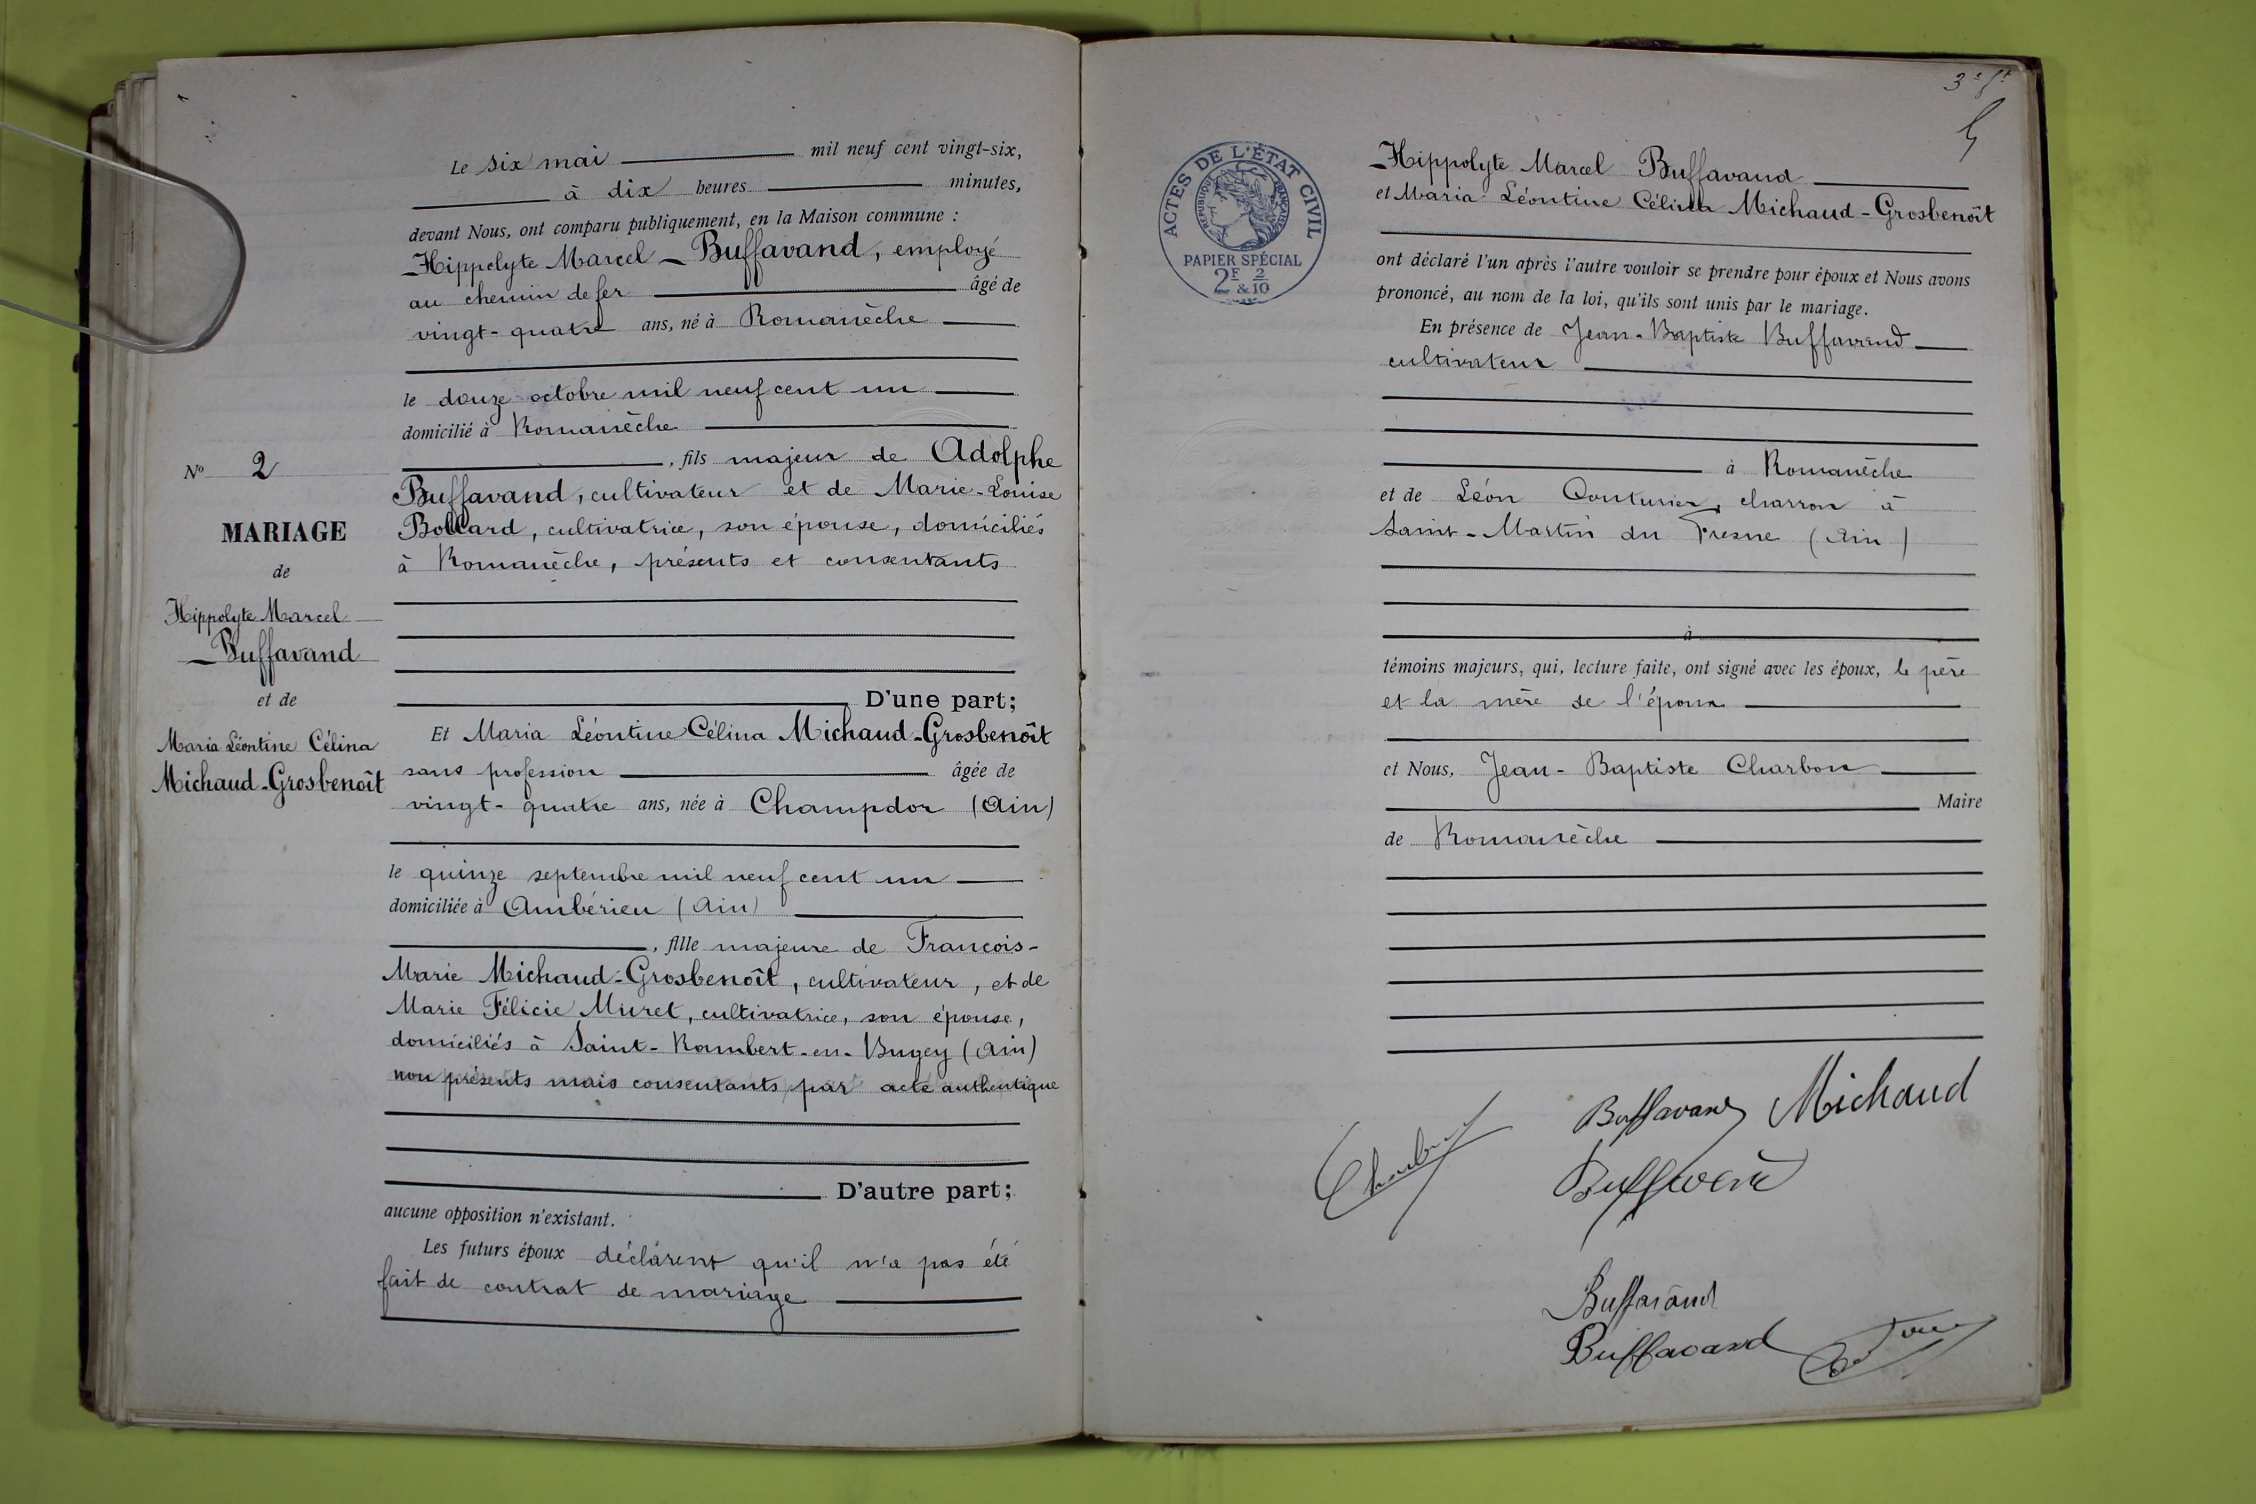 Le six mai mil neuf cent vingt-six,
à dix heures minutes,
devant Nous, ont comparu publiquement, en la Maison commune :
Hippolyte Marcel Buffavand, employé
au chemin de fer âgé de
vingt-quatre ans, né à Romanèche
le douze octobre mil neuf cent un
domicilié à Romanèche
, fils majeur de Adolphe
Buffavand, cultivateur et de Marie-Louise
Bollard, cultivatrice, son épouse, domiciliés
à Romanèche, présents et consentants
D'une part;
Et Maria Léontine Célina Michaud-Grosbenoît
sans profession âgée de
vingt-quatre ans, née à Champdor (Ain)
le quinze septembre mil neuf cent un
domiciliée à Ambérieu (Ain)
, fille majeure de François-
Marie Michaud-Grosbenoît, cultivateur, et de
Marie Félicie Muret, cultivatrice, son épouse,
domiciliés à Saint-Rambert-en-Bugey (Ain)
non présents mais consentants par acte authentique
D'autre part;
aucune opposition n'existant.
Les futurs époux déclarent qu'il n'a pas été
fait de contrat de mariage
No 2
MARIAGE
de
Hippolyte Marcel
Buffavand
et de
Maria Léontine Célina
Michaud-Grosbenoît
ACTES DE L'ÉTAT CIVIL
RÉPUBLIQUE FRANÇAISE
PAPIER SPÉCIAL
2F & 2/10
Hippolyte Marcel Buffavand
et Maria Léontine Célina Michaud-Grosbenoît
ont déclaré l'un après l'autre vouloir se prendre pour époux et Nous avons
prononcé, au nom de la loi, qu'ils sont unis par le mariage.
En présence de Jean-Baptiste Buffavand
cultivateur
à Romanèche
et de Léon Couturier, charron à
Saint-Martin du Fresne (Ain)
à
témoins majeurs, qui, lecture faite, ont signé avec les époux, le père
et la mère de l'époux
et Nous, Jean-Baptiste Charbon
Maire
de Romanèche
Buffavand Michaud
Charbon
Buffavand
Buffavand
Buffavand